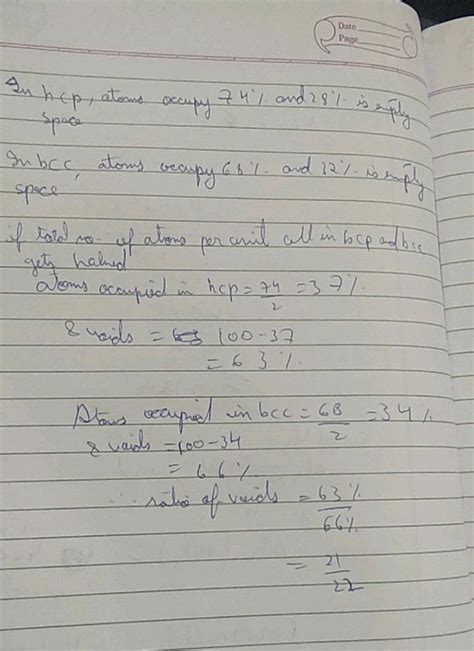 Date
Page
In hcp, atoms occupy 74% and 28% is empty
space
In bcc, atoms occupy 68% and 32% is empty
space
if total no. of atoms per unit cell in hcp and bcc
gets halved
atoms occupied in hcp = 74/2 = 37%.
& voids = 100-37
= 63%.
Atoms occupied in bcc = 68/2 = 34%
& voids = 100-34
= 66%
∴ ratio of voids = 63%/66%
= 21/22